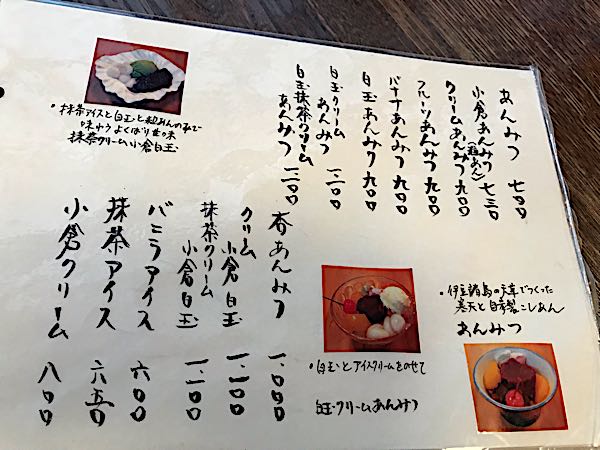 あんみつ 七〇〇
小倉あんみつ(粒あん) 七三〇
クリームあんみつ 九〇〇
フルーツあんみつ 九〇〇
バナナあんみつ 九〇〇
白玉あんみつ 九〇〇
白玉クリームあんみつ 一、一〇〇
白玉抹茶クリームあんみつ 一、二〇〇
・抹茶アイスと白玉と粒あんのみで
味わうよくばり甘味
抹茶クリーム小倉白玉
杏あんみつ 一、〇〇〇
クリーム小倉白玉 一、一〇〇
抹茶クリーム小倉白玉 一、二〇〇
バニラアイス 六〇〇
抹茶アイス 六五〇
小倉クリーム 八〇〇
・伊豆諸島の天草でつくった
寒天と自家製こしあん
あんみつ
・白玉とアイスクリームをのせて
白玉クリームあんみつ